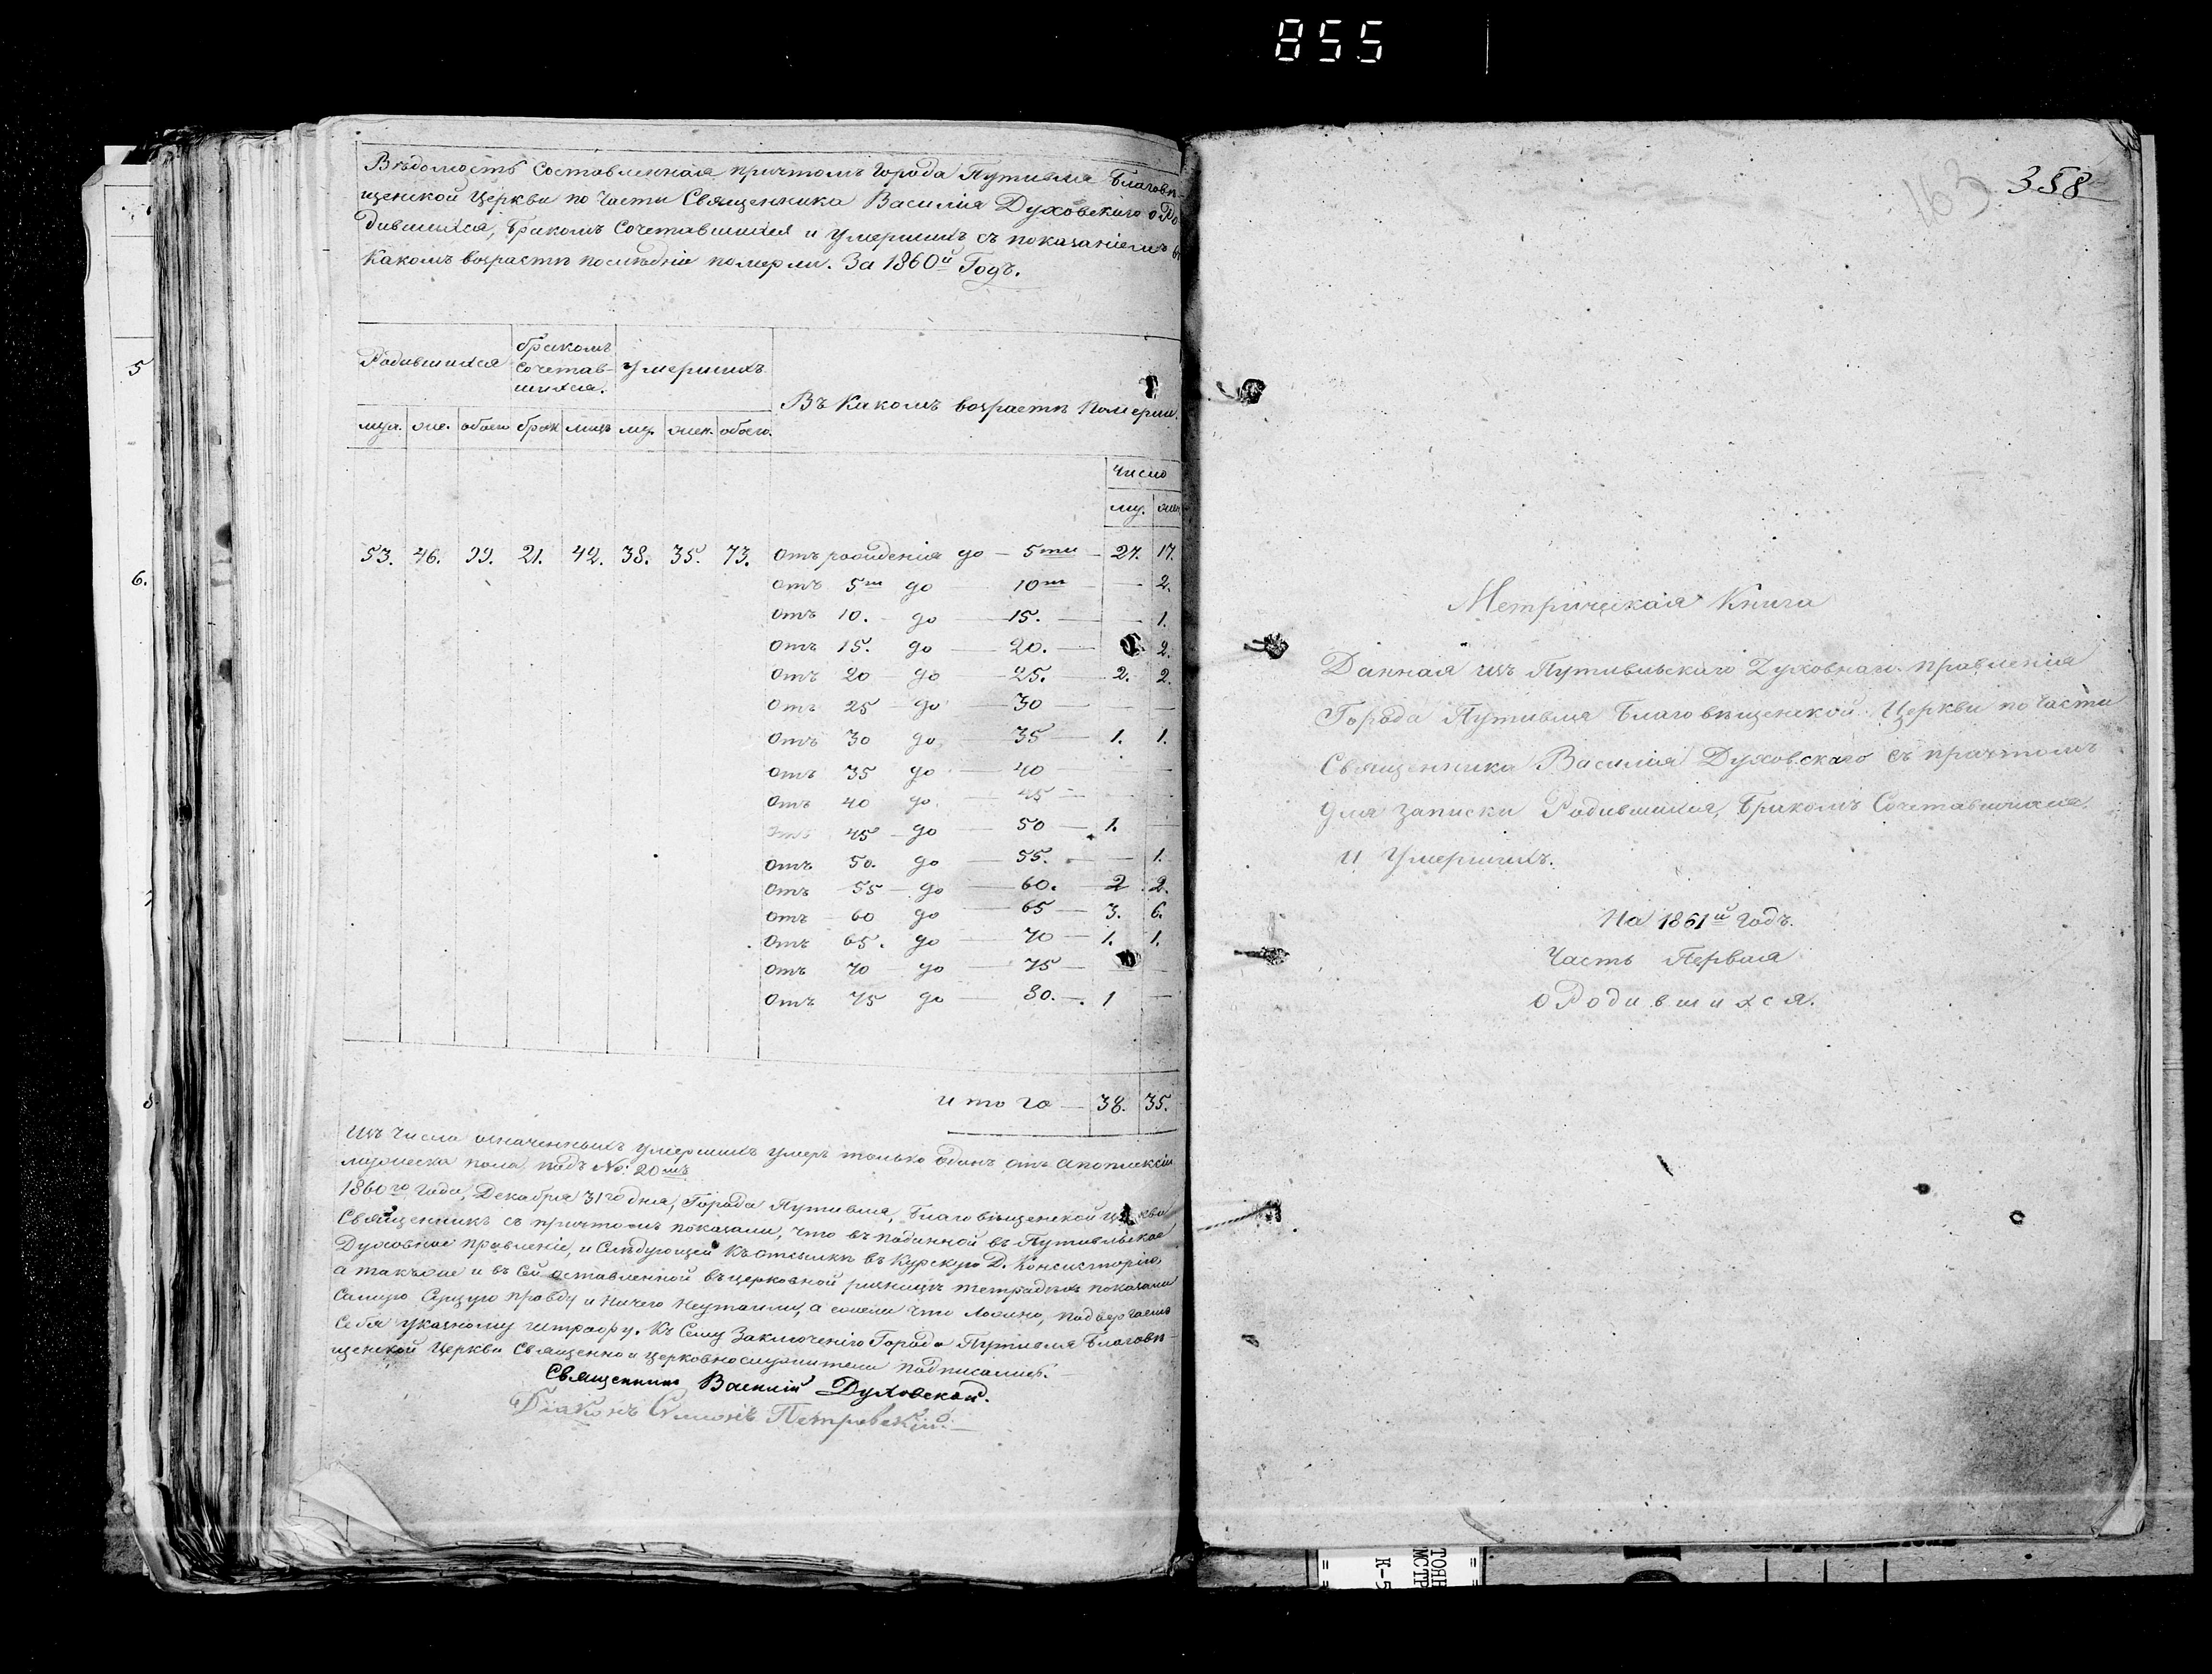 855
Вѣдомость Составленная причтомъ города Путивля Благовѣ-
щенской Церкви по Части Священника Василія Духовскаго о Ро-
дившихся, Бракомъ Сочетавшихся и Умершихъ съ показаніемъ въ
Какомъ возрастѣ послѣдніе померли. За 1860й Годъ.
Родившихся
бракомъ
сочетав-
шихся.
Умершихъ
Въ Какомъ возрастѣ Померли.
муж. жен. обоего брак лицъ му. жен. обоего.
Число
му. жен
53. 46. 99. 21. 42. 38. 35. 73. Отъ рожденія до — 5ти — 27. 17.
Отъ 5ти до 10ти — 2.
Отъ 10. до — 15. — 1.
Отъ 15. до — 20. — 2.
Отъ 20 до — 25. 2. 2.
Отъ 25 до — 30 — —
Отъ 30 до — 35 — 1. 1.
Отъ 35 до — 40 —
Отъ 40 до — 45 —
Отъ 45 — до — 50 — 1. —
Отъ 50. до — 55. — 1.
Отъ 55 — до — 60. — 2. 2.
Отъ 60 до — 65 — 3. 6.
Отъ 65. до — 70 — 1. 1.
Отъ 70 — до — 75 — —
Отъ 75 до — 80. — 1 —
Итого — 38. 35.
Изъ числа означенныхъ умершихъ умеръ только одинъ отъ апоплексіи
мужеска пола подъ №: 20мъ
1860го Года, Декабря 31го дня, Города Путивля, Благовѣщенской Церкви
Священникъ съ причтомъ показали, что въ поданной въ Путивльское
Духовное правленіе, и Слѣдующей Къ отсылкѣ въ Курскую Д. Консисторію,
а такъже и въ Сей оставленной въ церковной ризницѣ тетрадяхъ показали
Самую Сущую правду и Ничего Неутаили, а ежели что Ложно, подвергаемъ
Себя указному штрафу. Къ Сему Заключенію Города Путивля Благовѣ-
щенской Церкви Священно и церковнослужители подписались.
Священникъ Василій Духовской.
Діаконъ Симонъ Петровскій.
5
6.
8
163
358
Метрическая Книга
Данная изъ Путивльскаго Духовнаго правленія
Города Путивля Благовѣщенской Церкви по Части
Священника Василія Духовскаго съ причтомъ
для записки Родившихся, Бракомъ Сочетавшихся
И Умершихъ.
На 1861й Годъ.
Часть Первая
о Родившихся.
К-5